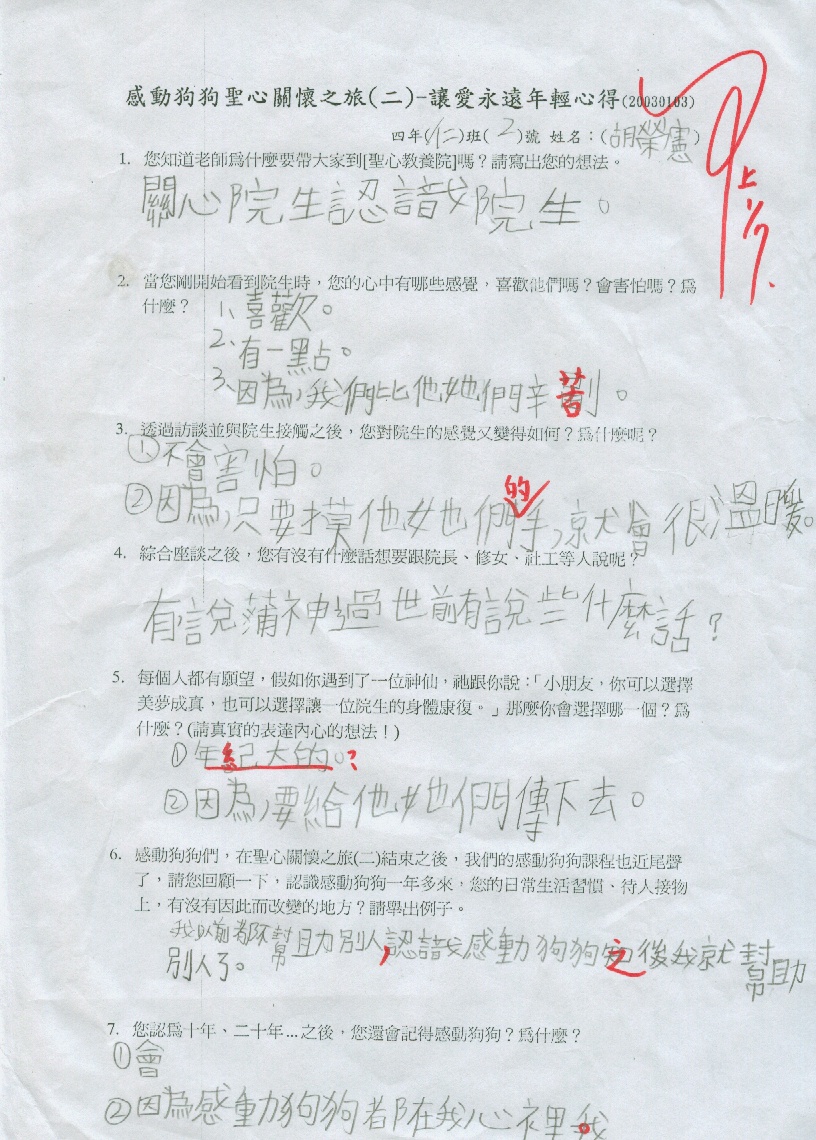 感動狗狗聖心關懷之旅(二)-讓愛永遠年輕心得(20030103)
四年(仁)班(2)號 姓名：(胡榮憲)
1. 您知道老師為什麼要帶大家到[聖心教養院]嗎？請寫出您的想法。
關心院生認識院生。
2. 當您剛開始看到院生時，您的心中有哪些感覺，喜歡他們嗎？會害怕嗎？為
什麼？
1、喜歡。
2、有一點。
3、因為，我們比他她們辛苦。
3. 透過訪談並與院生接觸之後，您對院生的感覺又變得如何？為什麼呢？
①不會害怕。
②因為，只要摸他她們的手，就會很溫暖。
4. 綜合座談之後，您有沒有什麼話想要跟院長、修女、社工等人說呢？
有說蒲神過世前有說些什麼話？
5. 每個人都有願望，假如你遇到了一位神仙，祂跟你說：「小朋友，你可以選擇
美夢成真，也可以選擇讓一位院生的身體康復。」那麼你會選擇哪一個？為
什麼？(請真實的表達內心的想法！)
①年紀大的。？
②因為，要給他她們傳下去。
6. 感動狗狗們，在聖心關懷之旅(二)結束之後，我們的感動狗狗課程也近尾聲
了，請您回顧一下，認識感動狗狗一年多來，您的日常生活習慣、待人接物
上，有沒有因此而改變的地方？請舉出例子。
我以前都不幫助別人，認識感動狗狗之後我就幫助
別人了。
7. 您認為十年、二十年…之後，您還會記得感動狗狗？為什麼？
①會
②因為感動狗狗都在我心裡。